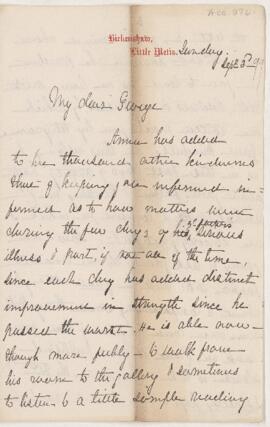 Acc. 976
Birkenshaw,
Little Metis.
Sunday
Sept 3rd
My dear George
Annie has added
to her thousand other kindness
that of keeping you informed in-
formed as to how matters were
during the few days of her father's serious
illness & part, if not all of the time,
since each day has added distinct
improvement in strength since he
passed the worst. He is able now -
though more feebly - to walk from
his room to the gallery & sometimes
to listen to a little simple reading